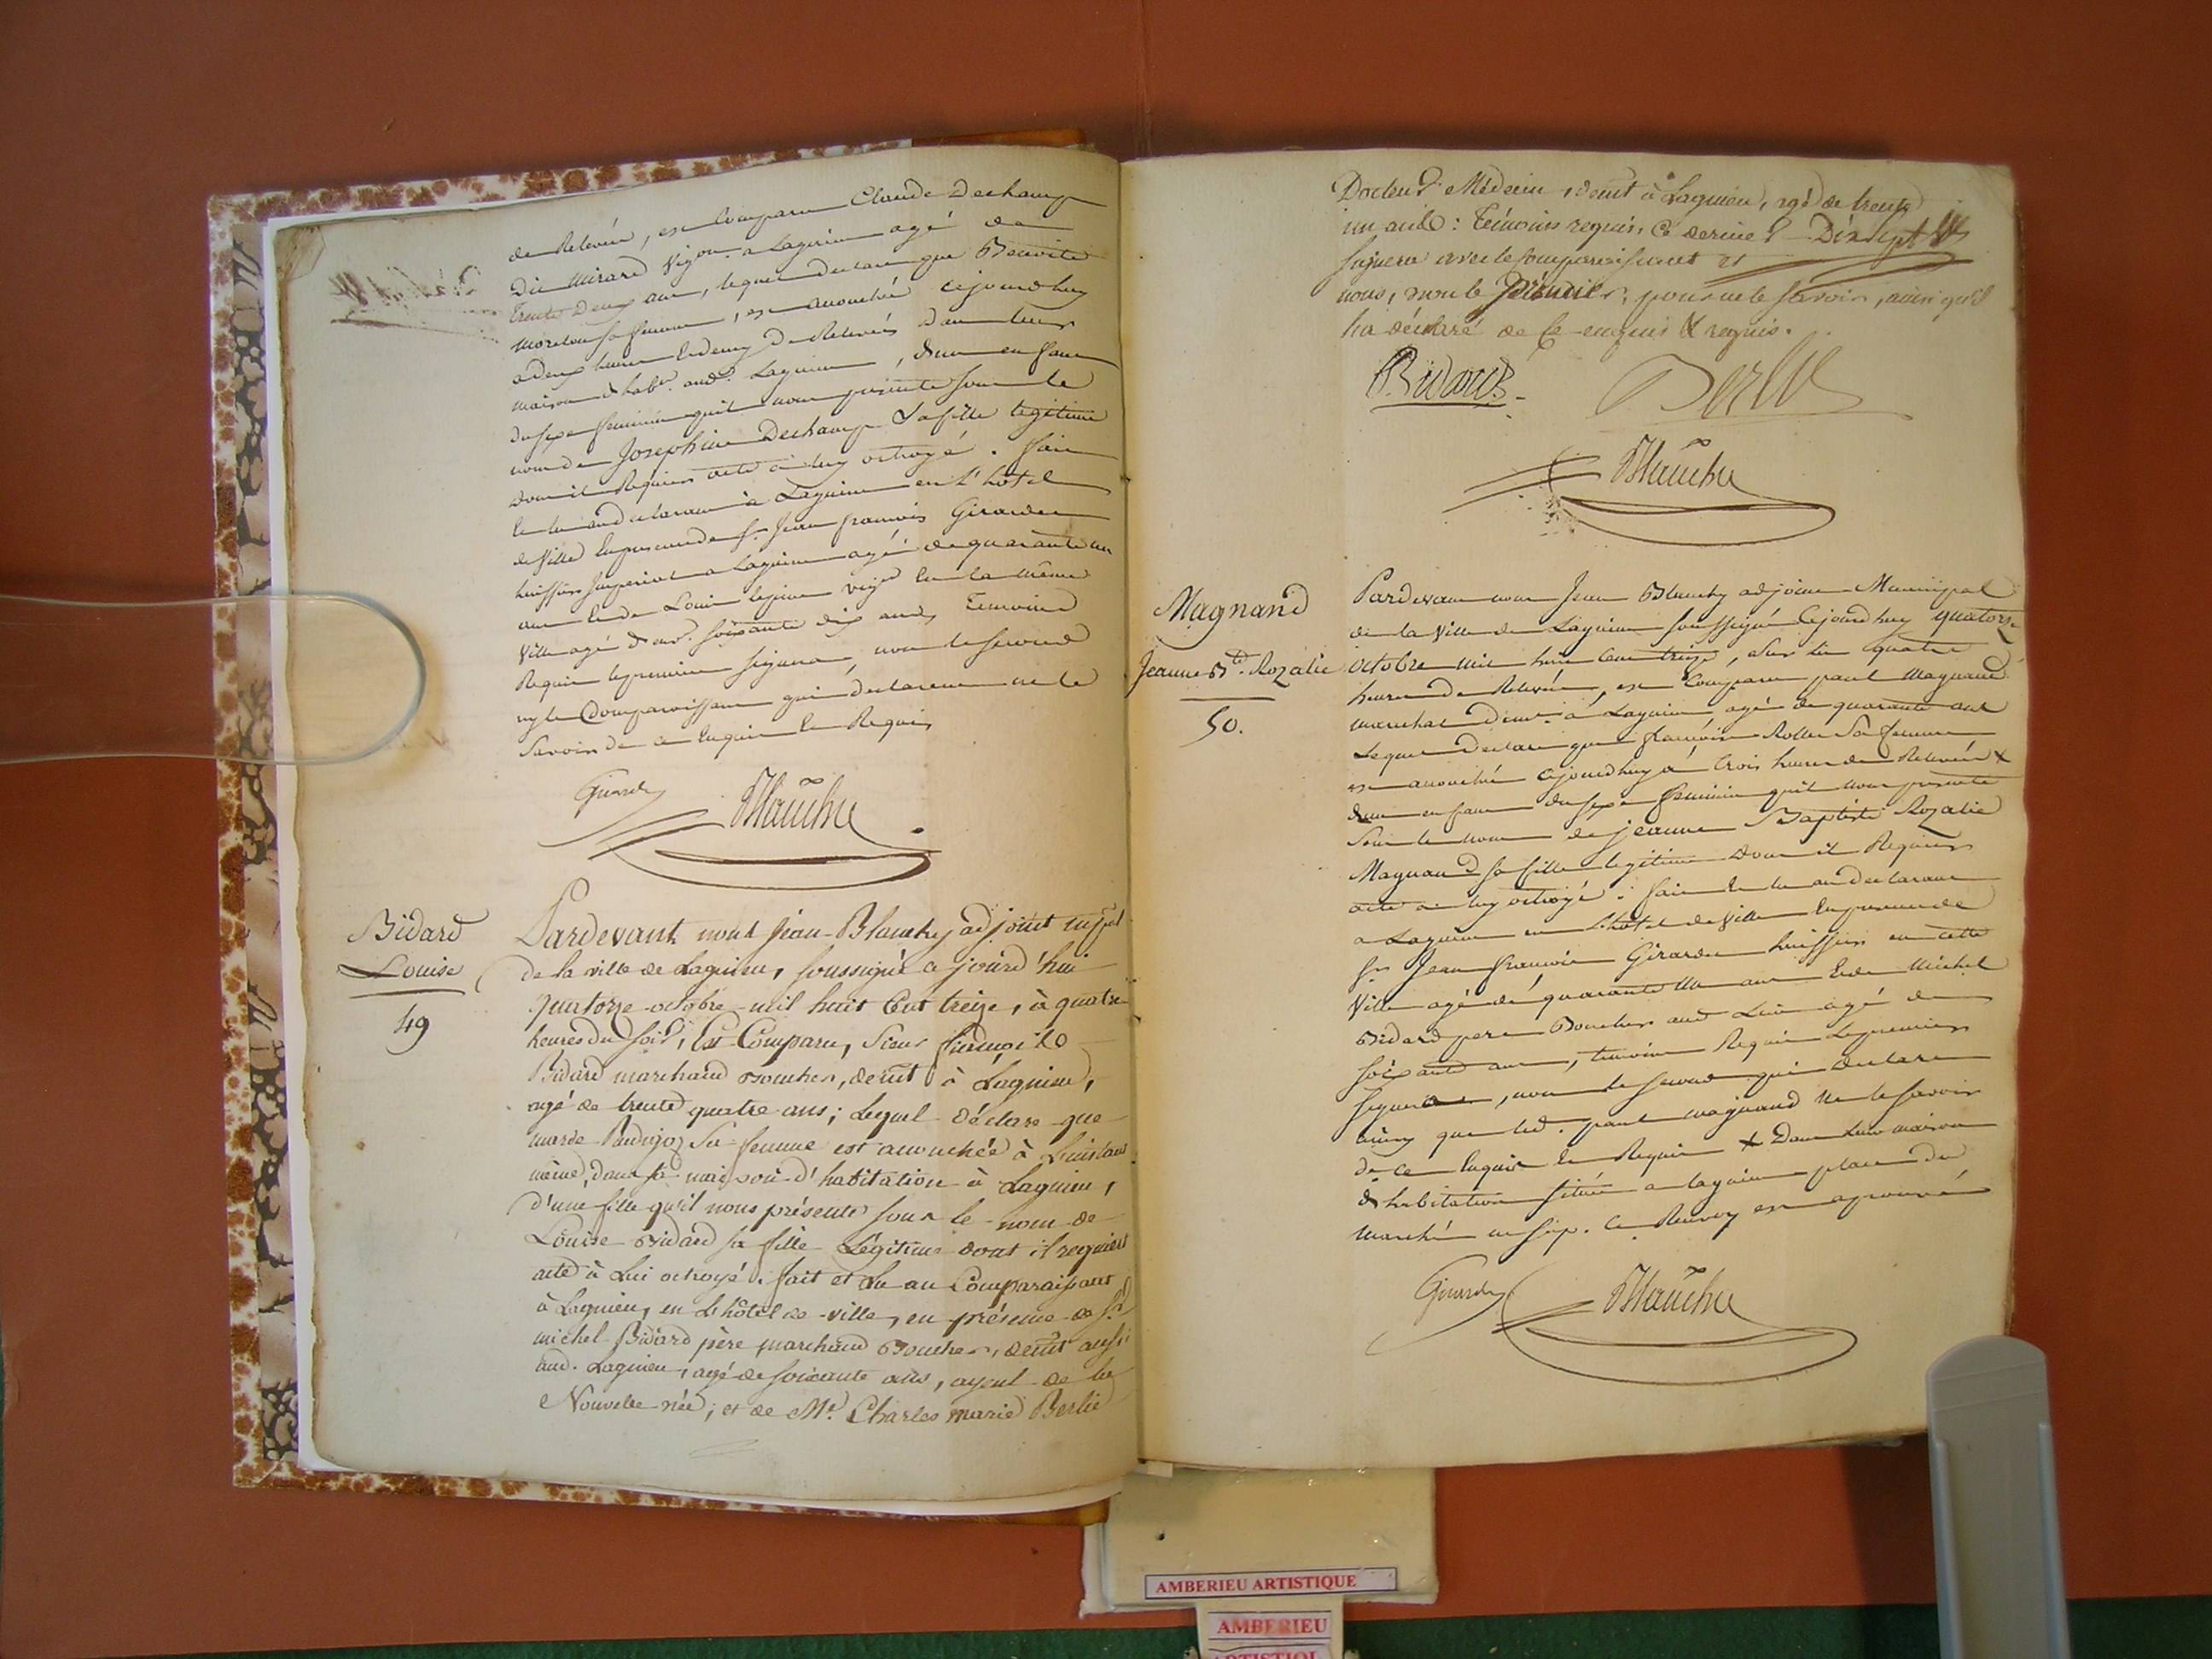 de Relevée, est Comparu Claude Dechamp
Dit Mirard vigon a Lagnieu agé de
trente Deux ans, lequel declare que Benoite
Morelon sa femme, est accouchée cejourdhuy
a deux heures Et demy De Relevées Dans leur
maison d'hab.on aud. Lagnieu, d'un enfant
du sexe feminin quil nous presente sous le
nom de Josephine Dechamp Sa fille legitime
dont il Requiers acte a luy octroyé. fait
Et lu aud declarant a Lagnieu en l'hôtel
de Ville En presence de Sr. Jean francois Girardin
huissier Imperial a Lagnieu agé de quarante un
ans Et de Louis vign Et la même
Ville agé d'env. soixante dix ans, Temoins
Requis le premier signera, non le second
ny le Comparoissant qui declarent ne le
Savoir de ce Enquis Et Requis
Girardin Blanchy
Bidard
Louise
49
Pardevant nous Jean-Blanchy adjoint mpal
de la ville de Lagnieu, soussigné ce jourd'hui
quatorze octobre mil huit Cent treize, à quatre
heures du soir, Est Comparu, Sieur
Bidard marchand Boucher, demt à Lagnieu,
agé de trente quatre ans; Lequel déclare que
marie Sa femme est accouchée à L'instant
même, dans sa maison d'habitation à Lagnieu,
d'une fille qu'il nous présente sous le nom de
Louise Bidard sa fille Légitime dont il requiert
acte à Lui octroyé. fait et Lu au Comparaissant
à Lagnieu, en L'hôtel de ville, en présence de Sr.
michel Bidard père marchand Boucher, demt aussi
aud. Lagnieu, agé de soixante ans, ayeul de la
Nouvelle née; et de Mr. Charles marie Berlie
Docteur Médecin, demt à Lagnieu, agé de trente
un ans: Témoins requis, Ce dernier
signera avec le Comparaissant et
nous, non le Premier, pour ne le savoir, ainsi qu'il
l'a déclaré de Ce enquis & requis.
Bidard Berlie
Blanchy
Magnand
Jeanne Bte. Rozalie
50.
Pardevant nous Jean Blanchy adjoint Municipal
de la Ville de Lagnieu soussigné Cejourdhuy quatorze
octobre mil huit Cent treize, sur les quatre
heures de Relevée, est Comparu paul Magnand
marechal demt. à Lagnieu agé de quarante ans
Lequel declare que francoise Rollet Sa femme
est accouchée cejourdhuy a trois heures de Relevée x
d'un enfant du sexe feminin quil nous presente
Sous le nom de jeanne Baptiste Rozalie
Magnand sa fille legitime dont il Requiers
acte a luy octroyé: fait Et lu au declarant
a Lagnieu en l'hôtel de Ville En presence de
Sr. Jean francois Girardin huissier en cette
Ville agé de quarante un ans Et de Michel
Bidard pere Boucher aud Lieu agé de
soixante ans, temoins Requis le premier
signera, non le second qui declare
ainsy que led. paul magnand ne le savoir
de ce Enquis Et Requis x Dans leur maison
d'habitation située a lagnieu place du
marché Ce Renvoy est aprouvé
Girardin Blanchy
AMBERIEU ARTISTIQUE
AMBERIEU